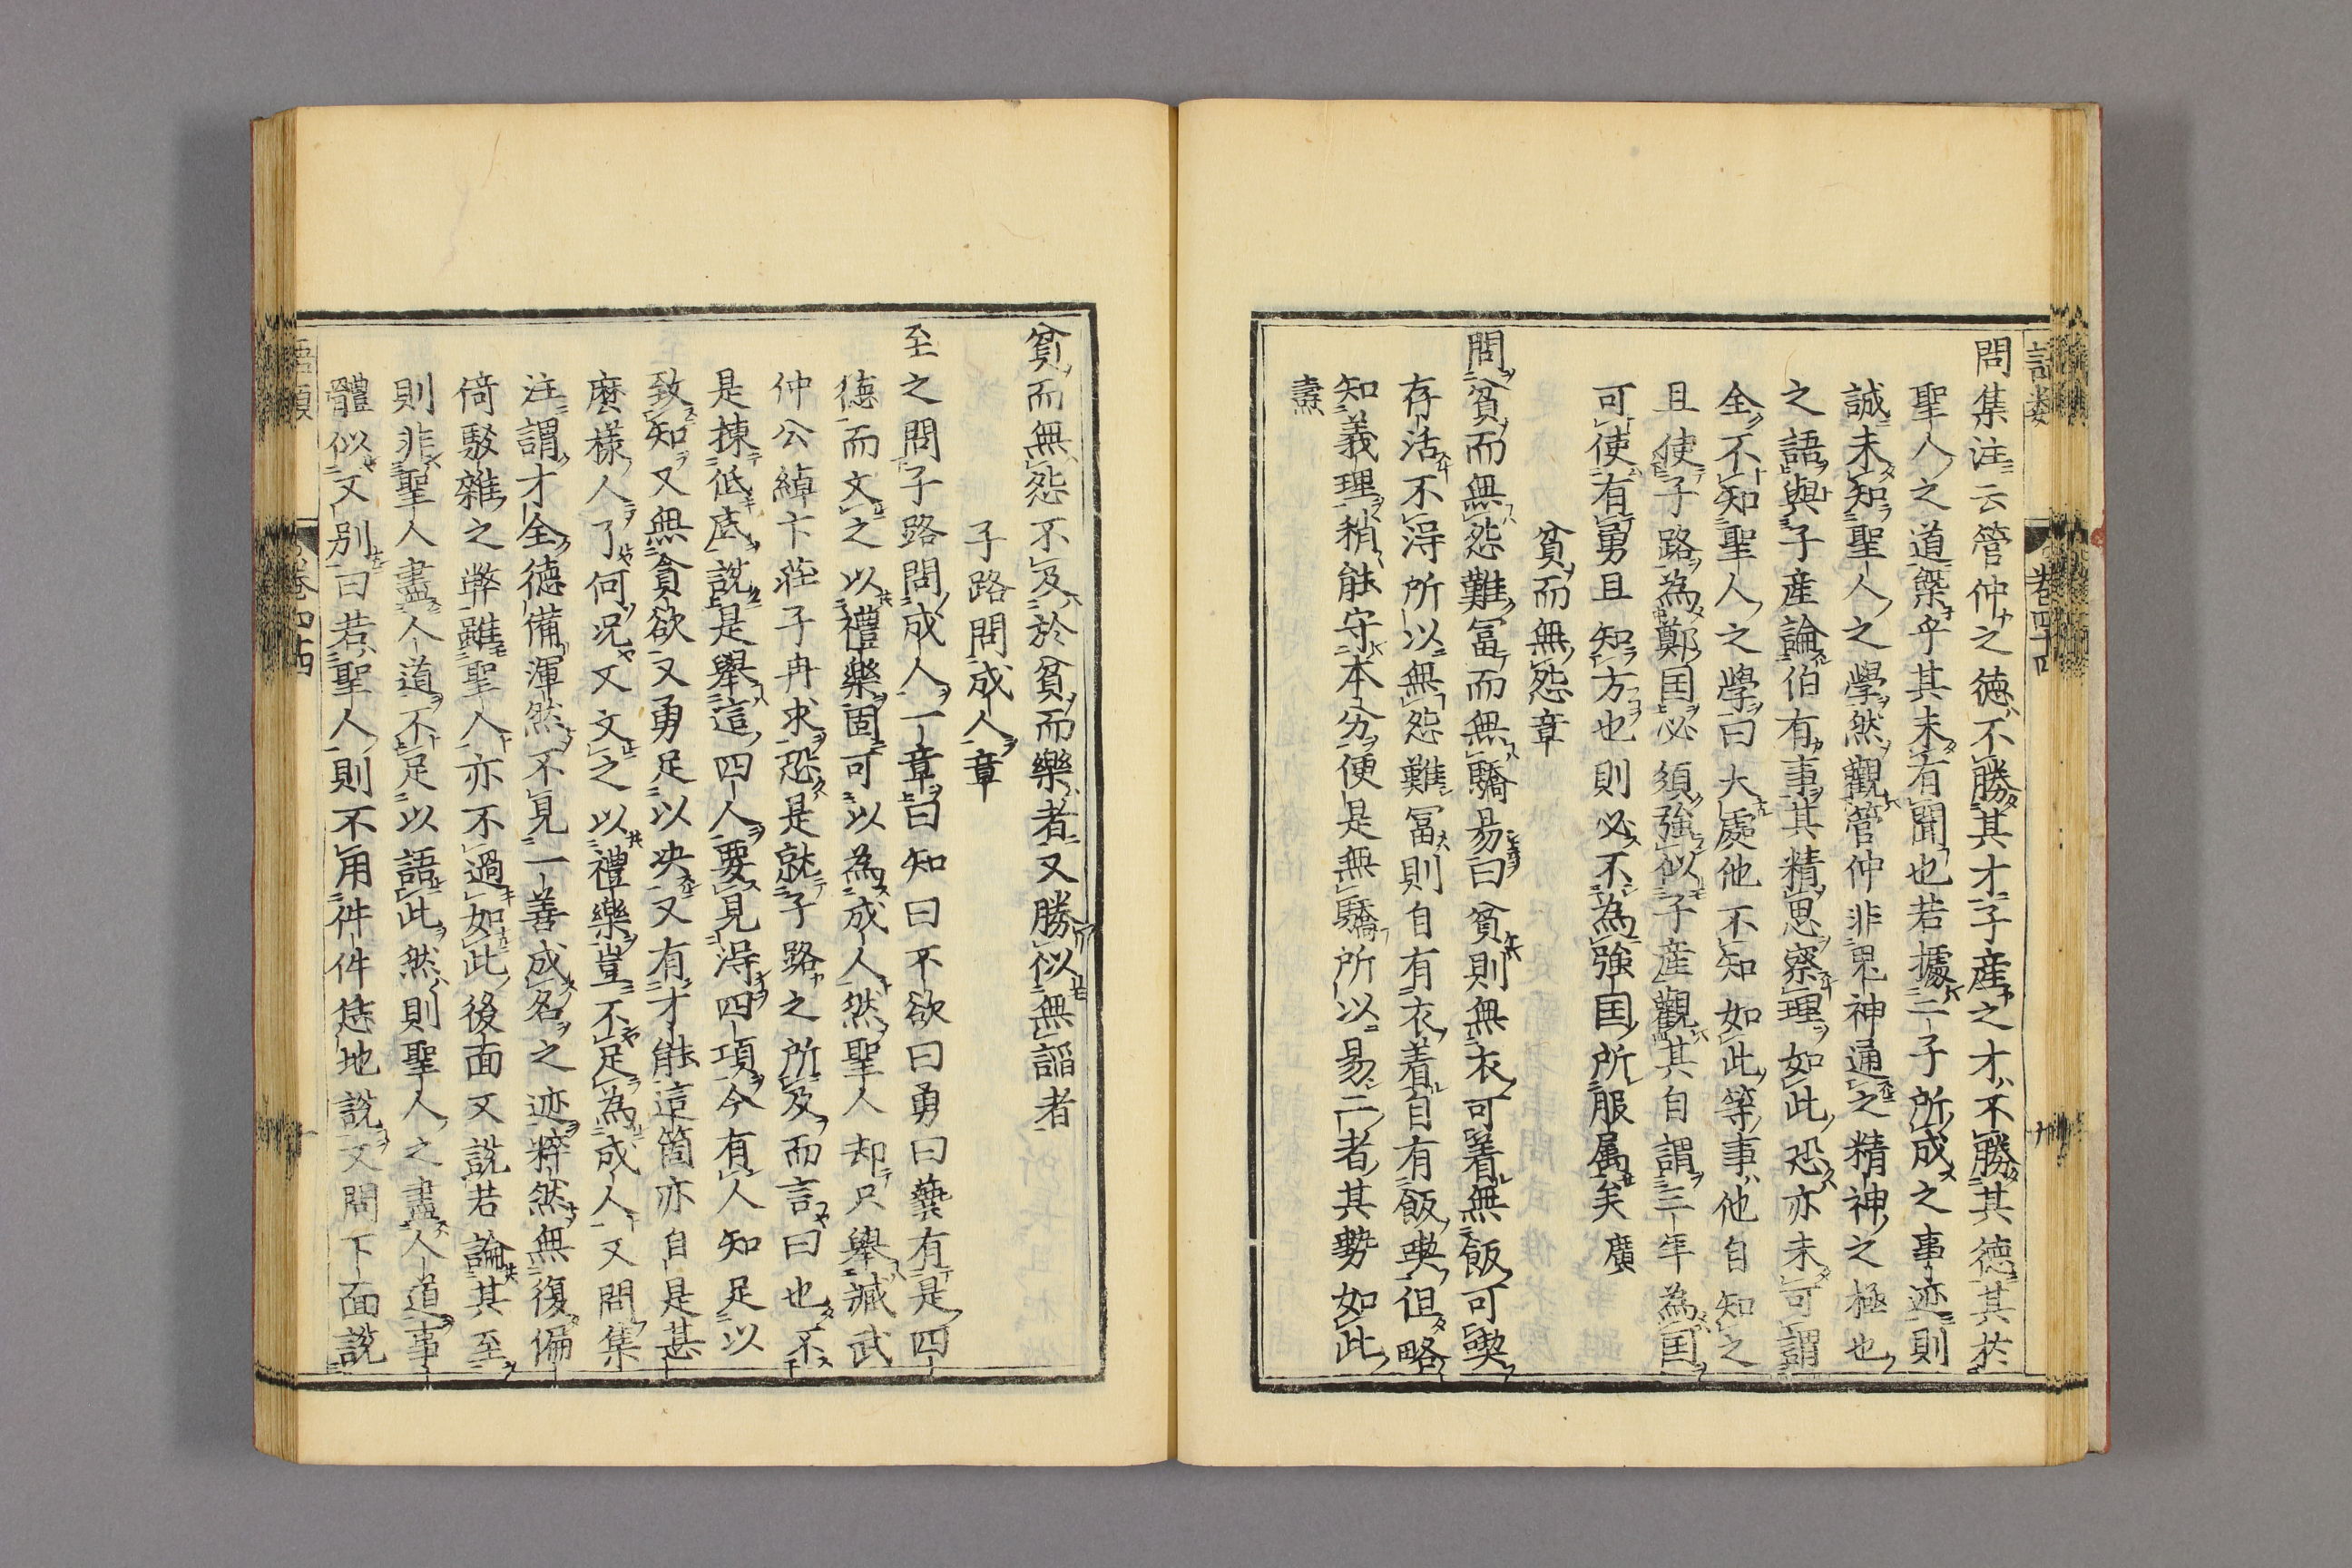 問集注云管仲之徳不勝其才子産之才不勝其徳其於
聖人之道槩乎其未有聞也若據二子所成之事迹則
誠未知聖人之學然觀管仲非鬼神通之精神之極也
之語與子産論伯有事其精思察理如此恐亦未可謂
全不知聖人之學曰大處他不知如此等事他自知之
且使子路為鄭囯必須強似子産觀其自謂三年為囯
可使有勇且知方也則必不為強囯所服属矣廣
貧而無怨章
問貧而無怨難冨而無驕易曰貧則無衣可着無飯可喫
存活不得所以無怨難冨則自有衣着自有飯喫但略
知義理稍能守本分便是無驕所以易二者其勢如此
燾
貧而無怨不及於貧而樂者又勝似無謟者
子路問成人章
至之問子路問成人一章曰知曰不欲曰勇曰藝有是四
徳而文之以禮樂固可以為成人然聖人却只舉臧武
仲公綽卞莊子冉求恐是就子路之所及而言曰也不
是揀低底説是舉這四人要見得四項今有人知足以
致知又無貪欲又勇足以决又有才能這箇亦自是甚
麽樣人了何况又文之以禮樂豈不足為成人又問集
注謂才全徳備渾然不見一善成名之迹粹然無復偏
倚駁雜之弊雖聖人亦不過如此後面又説若論其至
則非聖人盡人道不足以語此然則聖人之盡人道事
體似又别曰若聖人則不用件件恁地説又問下面説
語類
卷四十四
十